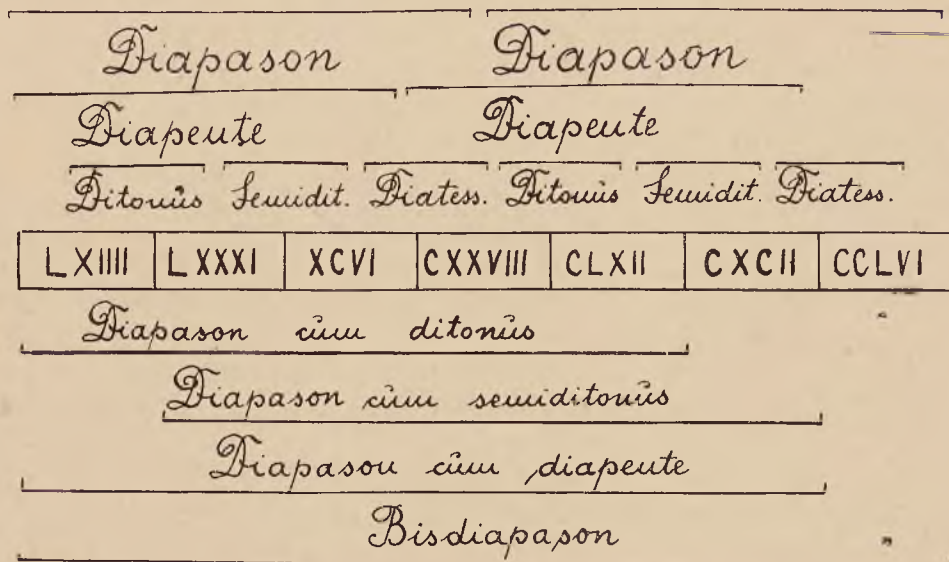 Diapason Diapason
Diapente Diapente
Ditonus Semidit. Diatess. Ditonus Semidit. Diatess.
LXIIII LXXXI XCVI CXXVIII CLXII CXCII CCLVI
Diapason cum ditonus
Diapason cum semiditonus
Diapason cum diapente
Bisdiapason